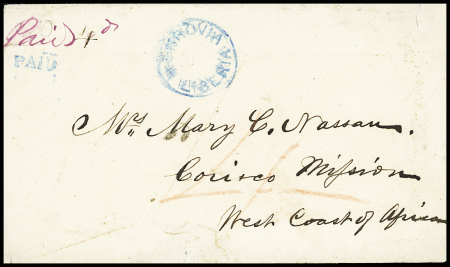 Paid 4d
PAID
MONROVIA LIBERIA
Mrs Mary C. Nassau.
Corisco Mission
West Coast of Africa
4